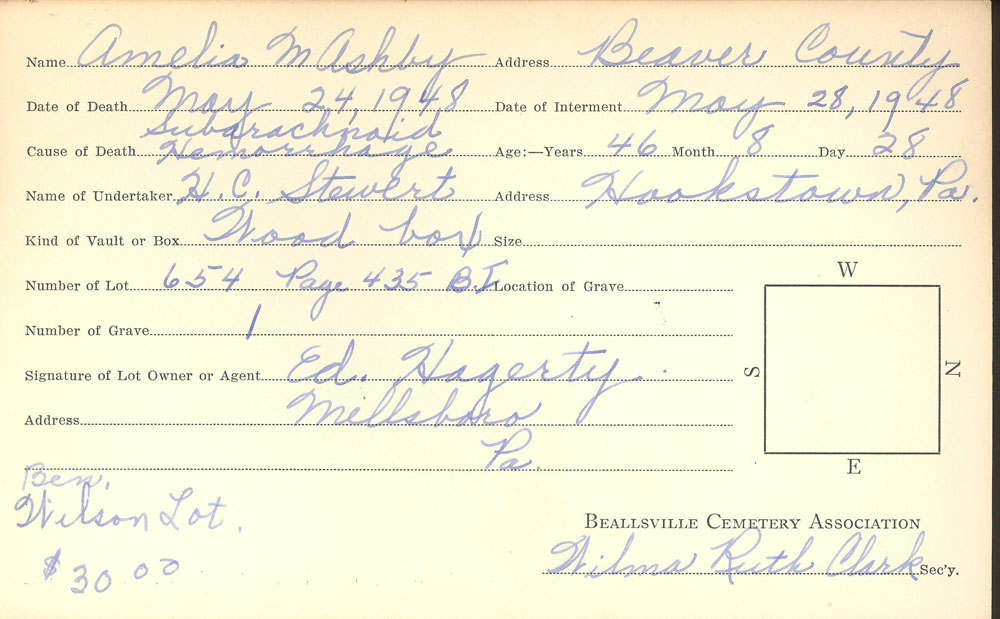 Name Amelia M Ashby Address Beaver County
Date of Death May 24, 1948 Date of Interment May 28, 1948
Subarachnoid
Cause of Death Hemorrhage Age:—Years 46 Month 8 Day 28
Name of Undertaker H. C. Stewert Address Hookstown, Pa.
Kind of Vault or Box Wood box Size
Number of Lot 654 Page 435 B.I Location of Grave
W
Number of Grave 1
Signature of Lot Owner or Agent Ed. Hagerty
S N
Address Millsboro
Pa.
E
Ben.
Wilson Lot.
$30 00
BEALLSVILLE CEMETERY ASSOCIATION
Wilma Ruth Clark Sec'y.